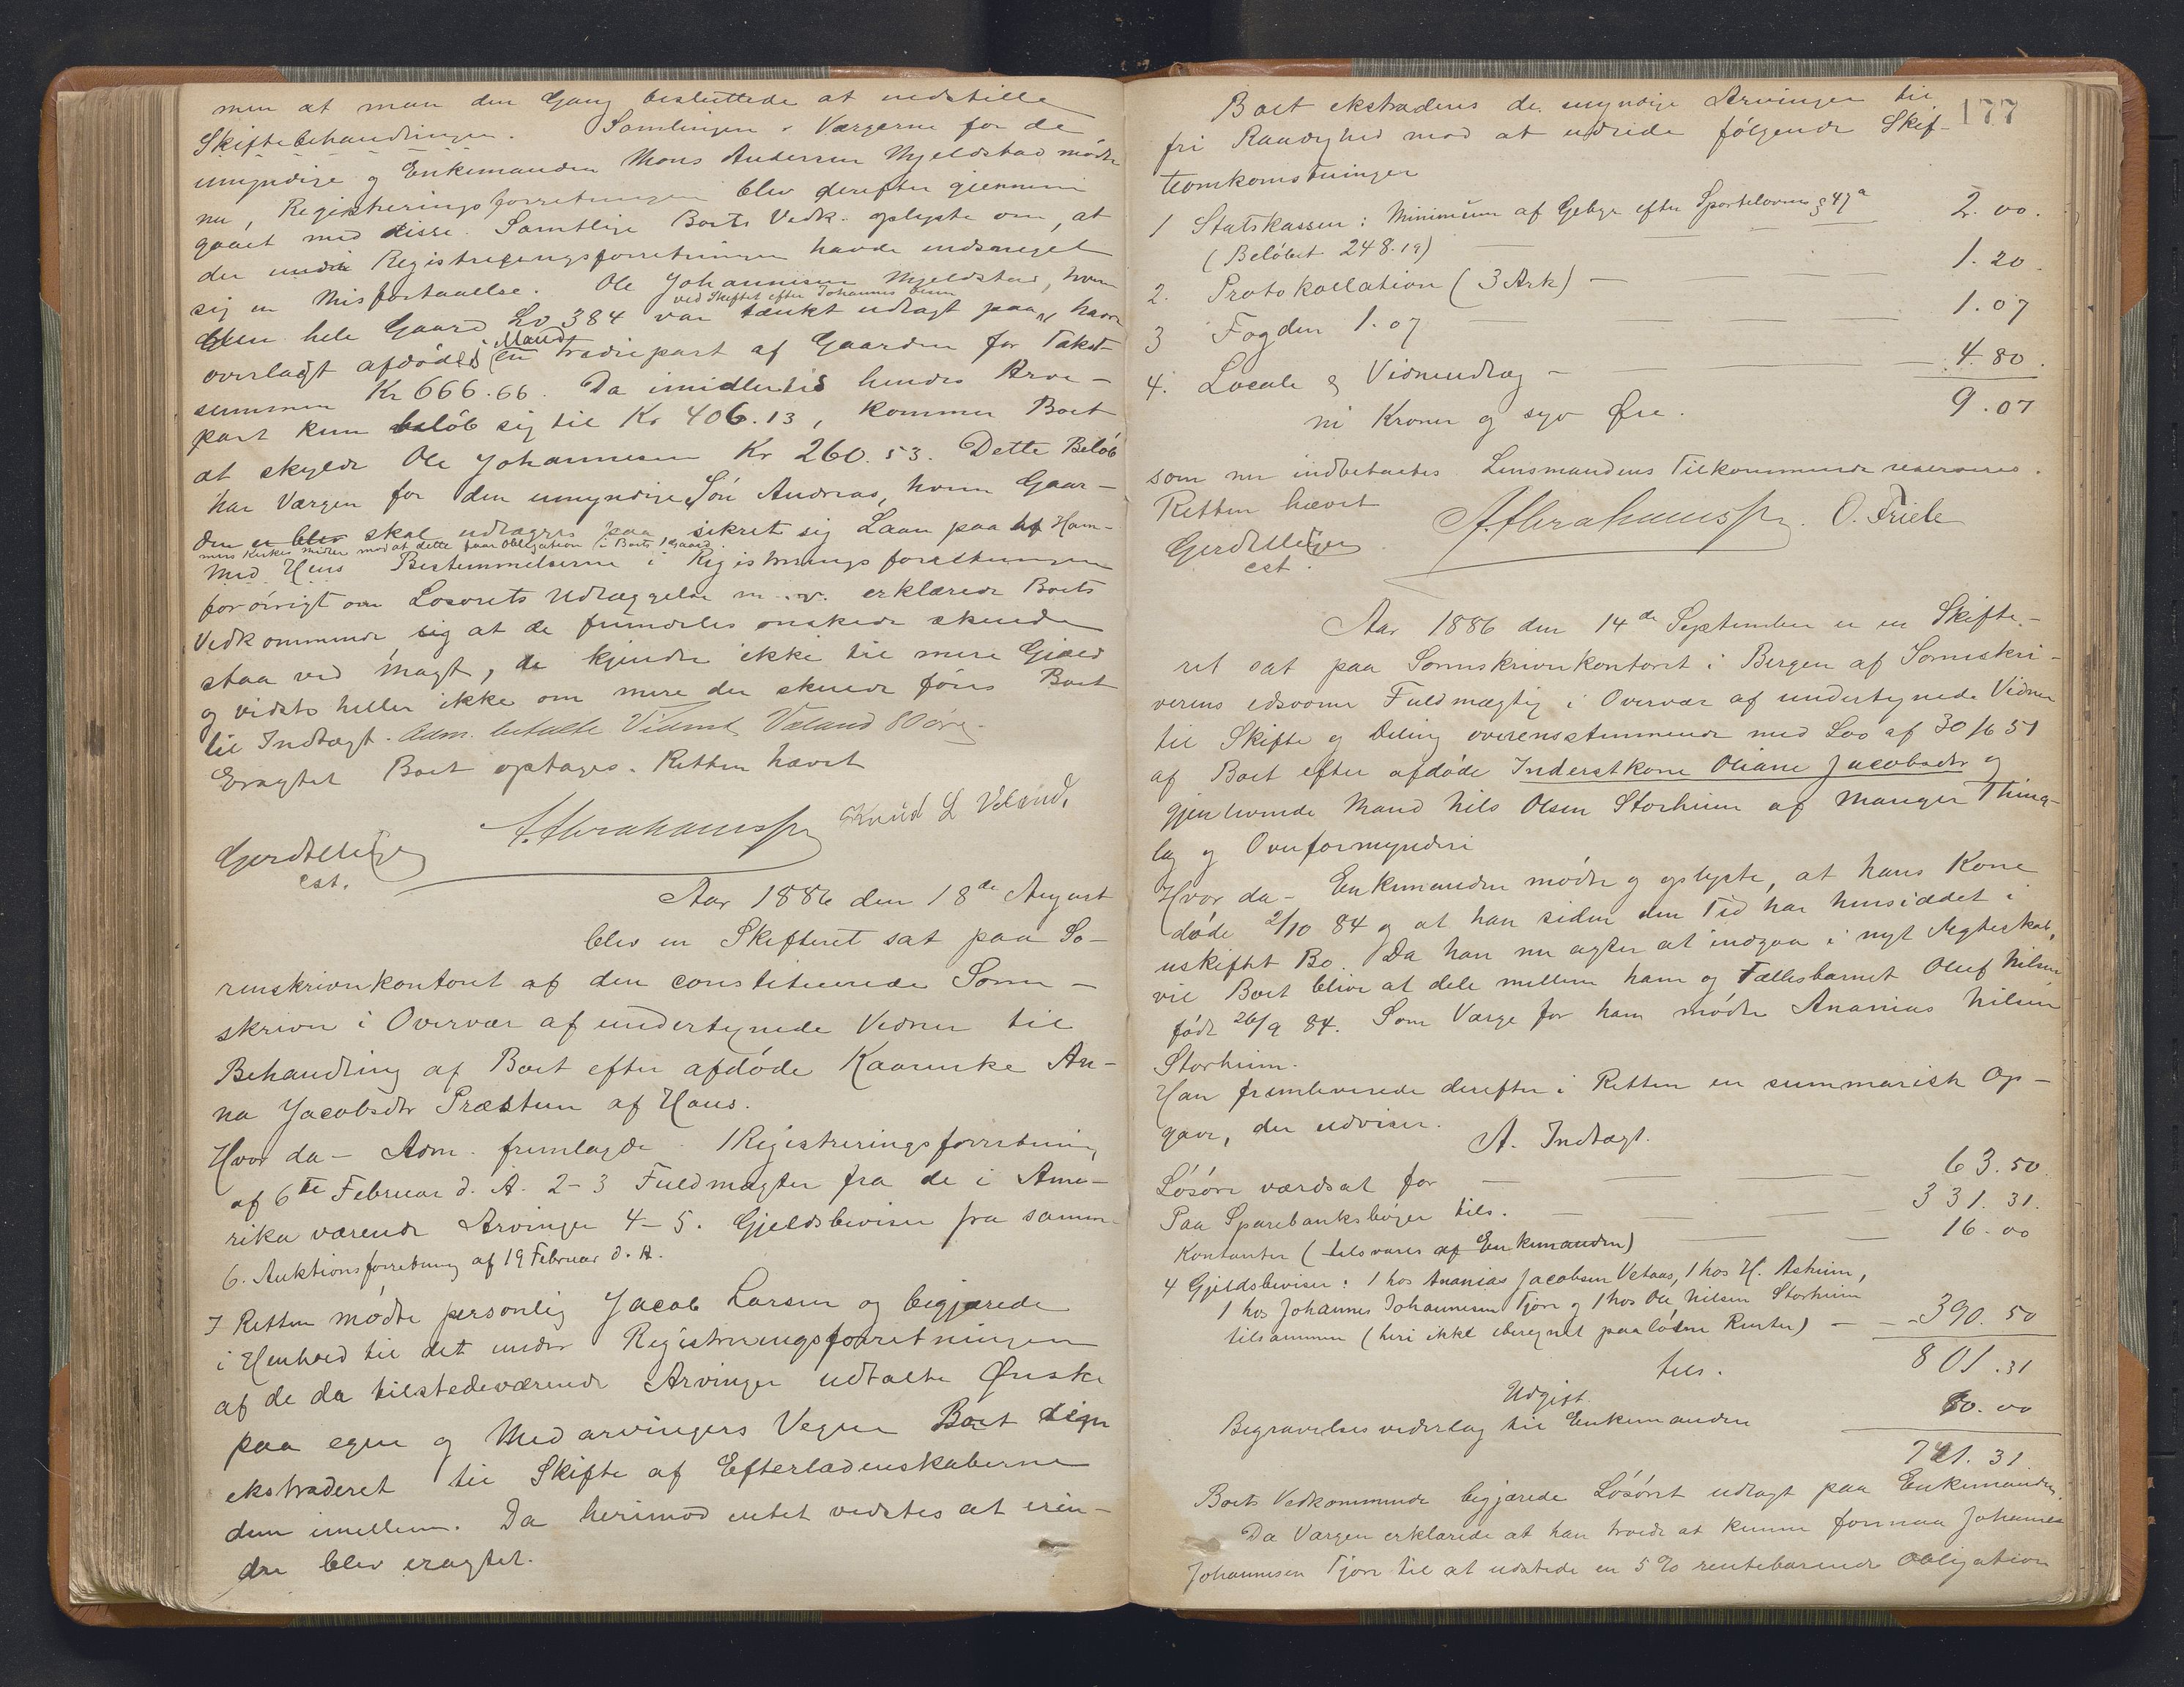 men at man den Gang besluttede at indstille
Skiftebehandlingen. Samtlige Værgerne for de
umyndige og Enkemanden Mons Andersen Mjeldstad mødte
nu, Registreringsforretningen blev derefter gjennem
gaaet med disse. Samtlige Boets Vedk. oplyste om, at
der under Registreringsforretningen havde indsneget
sig en Misforstaaelse. Ole Johannesen Mjeldstad, hvem
ved Skiftet efter Johannes
den hele Gaard Lv 384 var tænkt udlagt paa, havde
overladt afdødes Mand en Trediepart af Gaarden for Takst-
summen Kr 666.66. Da imidlertid hendes Arve-
part kun beløb sig til Kr 406.13, kommer Boet
at skylde Ole Johannesen Kr 260.53. Dette Beløb
har Værgen for den umyndige Søn Andreas, hvem Gaar-
den er blev skal udlægges paa sikret sig Laan paa af Ham-
mers Kirkes Midler mod at dette faar Obligation i Boets Gaard.
Med Hens Bestemmelserne i Registreringsforretningen
forøvrigt om Løsørets Udlæggelse m. v. erklærede Boets
Vedkommende sig at de fremdeles ønskede skulde
staa ved Magt, de kjendte ikke til mere Gjæld
og vidste heller ikke om mere der skulde føres Boet
til Indtægt. Adm. betalte Vidnet Væland 80 øre.
Eragtet Boet optages. Retten hævet
A. Abrahamsson Knud L Veland.
Gerdt Meyer
cst.
Aar 1886 den 18de August
blev en Skifteret sat paa So-
renskriverkontoret af den constituerede Soren-
skriver i Overvær af undertegnede Vidner til
Behandling af Boet efter afdøde Kaarenke An-
na Jacobsdtr Præstun af Haus.
Hvor da – Adm. fremlagde 1 Registreringsforretning
af 6te Februar d. A. 2–3 Fuldmagter fra de i Ame-
rika værende Arvinger 4–5. Gjeldsbeviser fra samme
6. Auktionsforretning af 19 Februar d. A.
I Retten mødte personlig Jacob Larsen og begjærede
i Henhold til det under Registreringsforretningen
af de da tilstedeværende Arvinger udtalte Ønske
paa egne og Medarvingers Vegne Boet
ekstraderet til Skifte af Efterladenskaberne
dem imellem. Da herimod intet vidstes at erin-
dre blev eragtet.
177
Boet ekstraderes de myndige Arvinger til
fri Raadighed mod at udrede følgende Skif-
teomkomstninger
1 Statskassen: Minimum af Gebyr efter Sportelloven § 47a 2.00.
(Beløbet 248.19)
2. Protokollation (3 Ark) — 1.20.
3 Fogden 1.07 1.07
4. Locale & Vidneudlæg — 4.80.
ni Kroner og syv Øre. 9.07
som nu indbetaltes. Lensmandens Tilkommende reserveres.
Retten hævet
A. Abrahamsson. O. Friele
Gerdt Meyer
cst.
Aar 1886 den 14de September er en Skifte-
ret sat paa Sorenskriverkontoret i Bergen af Sorenskri-
verens edsvorne Fuldmægtig i Overvær af undertegnede Vidner
til Skifte og Deling overensstemmende med Lov af 30/6 51
af Boet efter afdøde Inderstkone Oliane Jacobsdtr og
gjenlevende Mand Nils Olsen Storheim af Manger Thing-
lag og Overformynderi
Hvor da – Enkemanden mødte og oplyste, at hans Kone
døde 2/10 84 og at han siden den Tid har hensiddet i
uskiftet Bo. Da han nu agter at indgaa i nyt Ægteskab,
vil Boet blive at dele mellem ham og Fællesbarnet Oluf Nilsen
født 26/9 84. Som Værge for ham mødte Ananias Nilsen
Storheim.
Han fremleverede derefter i Retten en summarisk Op-
gave, der udviser.
A. Indtægt.
Løsøre værdsat for — 63.50.
Paa Sparebanksbøger tils. — 331.31.
Kontanter (tilsvares af Enkemanden) — 16.00
4 Gjeldsbeviser: 1 hos Ananias Jacobsen Vetaas, 1 hos H. Askeim,
1 hos Johannes Johannesen Tjore og 1 hos Ole Nilsen Storheim
tilsammen (heri ikke iberegnet paaløbne Renter) — 390.50
tils. 801.31
Udgift.
Begravelsesvederlag til Enkemanden 60.00
741.31
Boets Vedkommende begjærede Løsøret udlagt paa Enkemanden.
Da Værgen erklærede at han troede at kunne formaa Johannes
Johannesen Tjore til at udstede en 5% rentebærende Obligation